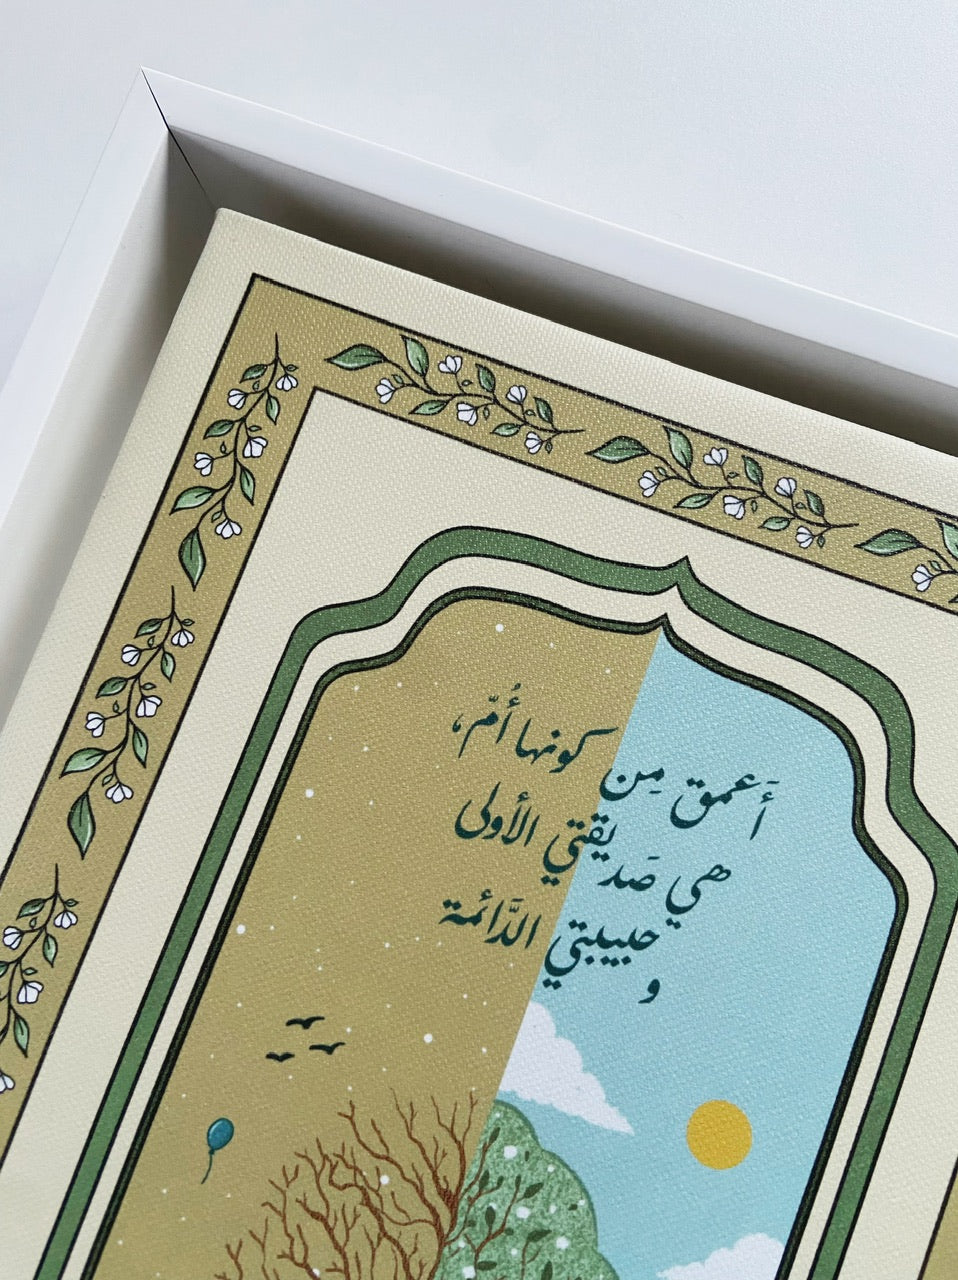 أَعمق مِن كونها أُمّ،
هي صَديقتي الأولى
و حبيبتي الدَّائمة